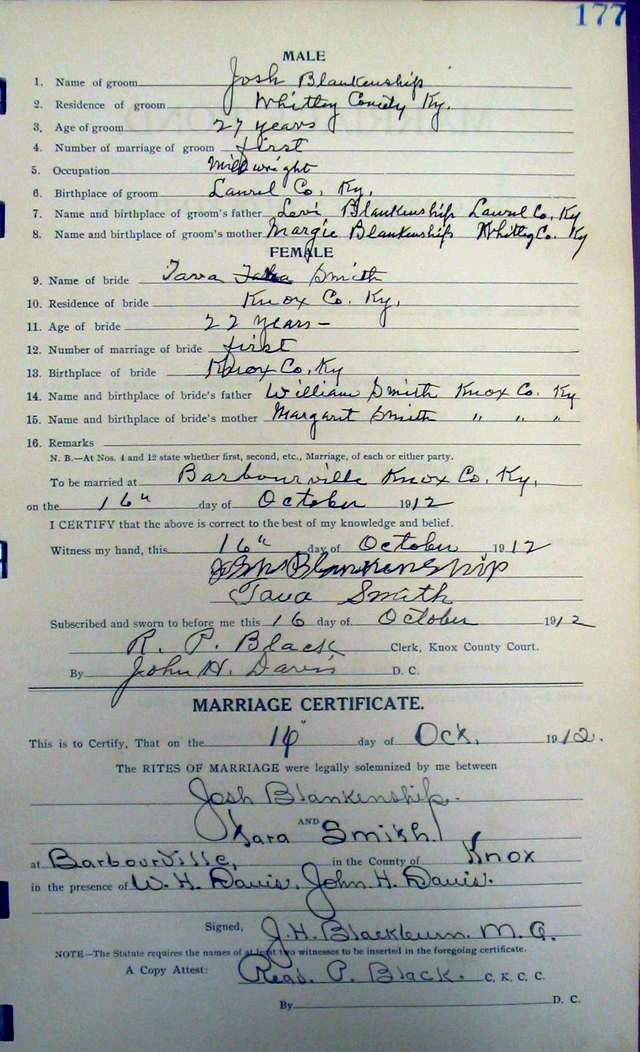 177
MALE
1. Name of groom Josh Blankenship
2. Residence of groom Whitley County Ky.
3. Age of groom 27 years
4. Number of marriage of groom first
5. Occupation Millwright
6. Birthplace of groom Laurel Co. Ky.
7. Name and birthplace of groom's father Levi Blankenship Laurel Co. Ky
8. Name and birthplace of groom's mother Margie Blankenship Whitley Co. Ky
FEMALE
9. Name of bride Tava Smith
10. Residence of bride Knox Co. Ky.
11. Age of bride 22 years –
12. Number of marriage of bride first
13. Birthplace of bride Knox Co. Ky
14. Name and birthplace of bride's father William Smith Knox Co. Ky
15. Name and birthplace of bride's mother Margaret Smith " " "
16. Remarks
N. B.—At Nos. 4 and 12 state whether first, second, etc., Marriage, of each or either party.
To be married at Barbourville Knox Co. Ky.
on the 16" day of October 1912
I CERTIFY that the above is correct to the best of my knowledge and belief.
Witness my hand, this 16" day of October 1912
Josh Blankenship
Tava Smith
Subscribed and sworn to before me this 16 day of October 1912
R. P. Black Clerk, Knox County Court.
By John H. Davis D. C.
MARRIAGE CERTIFICATE.
This is to Certify, That on the 16" day of Oct. 1912.
The RITES OF MARRIAGE were legally solemnized by me between
Josh Blankenship.
AND
Smith
at Barbourville, in the County of Knox
in the presence of W. H. Davis, John H. Davis.
Signed, J. H. Blackburn. M. G.
NOTE—The Statute requires the names of at least two witnesses to be inserted in the foregoing certificate.
A Copy Attest: P. Black. C. K. C. C.
By D. C.